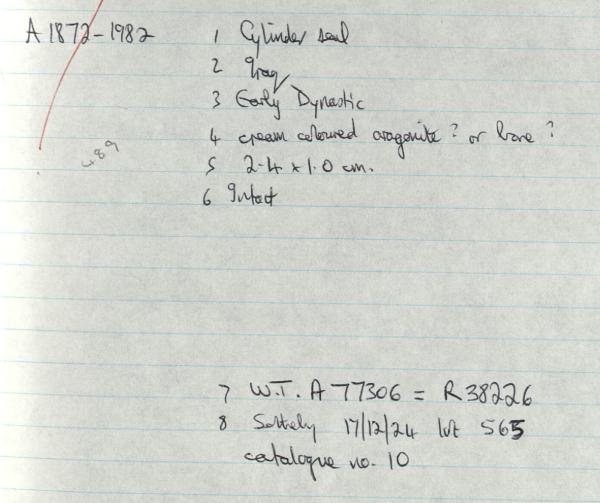 A 1872-1982
1 Cylinder seal
2 Iraq
3 Early Dynastic
4 cream coloured aragonite? or bone?
5 2.4 x 1.0 cm.
6 Intact
489
7 W.T. A 77306 = R 38226
8 Sotheby 17/12/24 lot 565
catalogue no. 10